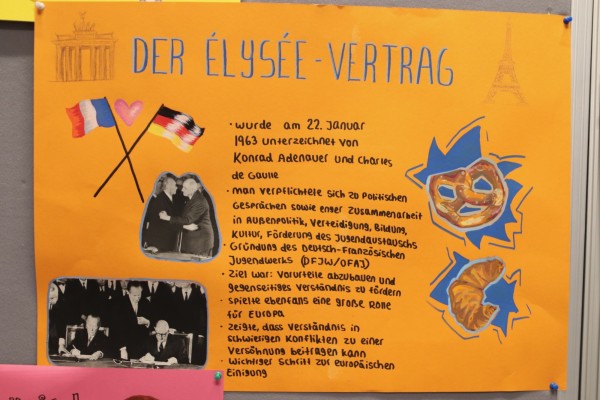 DER ÉLYSÉE-VERTRAG
• wurde am 22. Januar
1963 unterzeichnet von
Konrad Adenauer und Charles
de Gaulle
• man verpflichtete sich zu Politischen
Gesprächen sowie enger Zusammenarbeit
in Außenpolitik, Verteidigung, Bildung,
Kultur, Förderung des Jugendaustauschs
• Gründung des Deutsch-Französischen
Jugendwerks (DFJW/OFAJ)
• Ziel war: Vorurteile abzubauen und
gegenseitiges Verständnis zu fördern
• spielte ebenfans eine große Rolle
für Europa
• zeigte, dass Verständnis in
schwierigen Konflikten zu einer
Versöhnung beitragen kann
• Wichtiger Schritt zur europäischen
Einigung